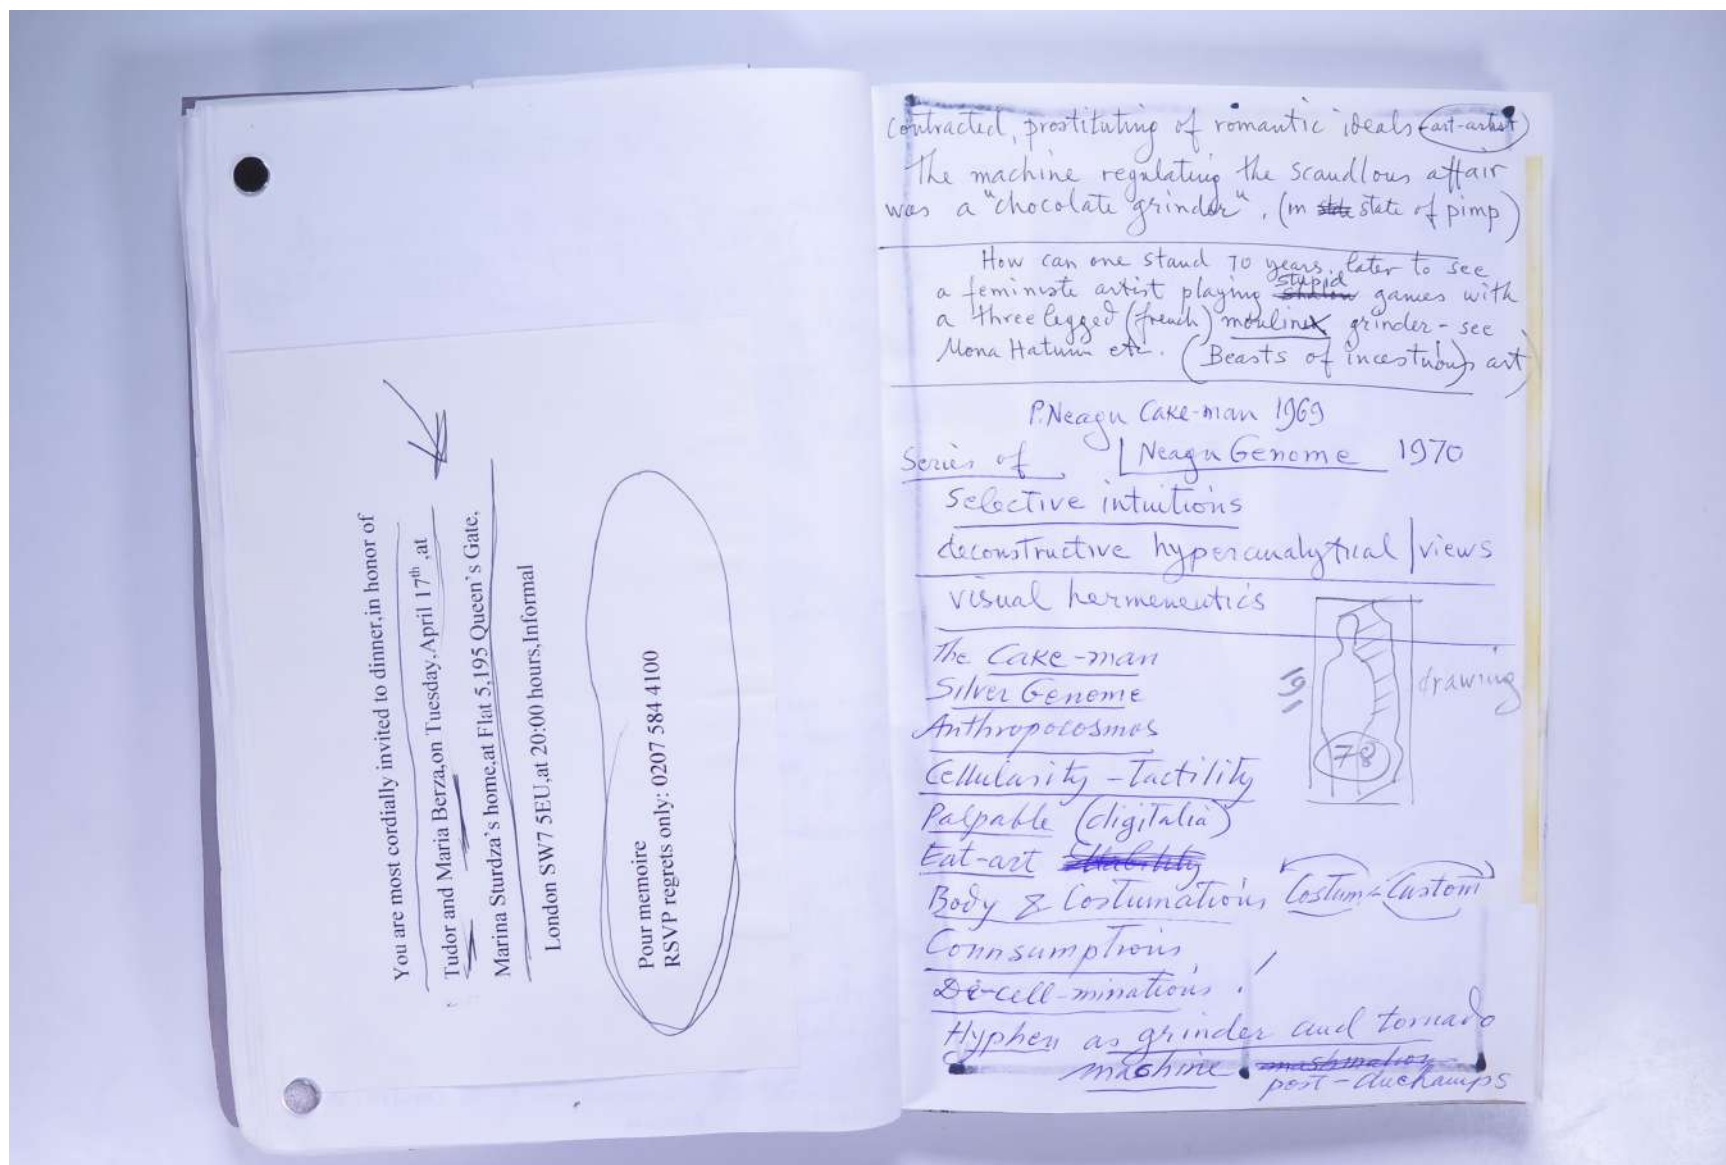 You are most cordially invited to dinner,in honor of
Tudor and Maria Berza,on Tuesday,April 17th ,at
Marina Sturdza's home,at Flat 5,195 Queen's Gate,
London SW7 5EU,at 20:00 hours,Informal
Pour memoire
RSVP regrets only: 0207 584 4100
contracted, prostituting of romantic ideals (art-artist)
The machine regulating the scandlous affair
was a "chocolate grinder". (in state of pimp)
How can one stand 70 years later to see
a feministe artist playing stupid games with
a three legged (french) moulinex grinder - see
Mona Hatum etc. (Beasts of incestuous art)
P.Neagu Cake-man 1969
Series of Neagu Genome 1970
Selective intuitions
deconstructive hyperanalytical views
visual hermeneutics
The Cake-man
Silver Genome
drawing
Anthropocosmos
78
Cellularity - Tactility
Palpable (digitalia)
Eat-art
Body & Costumations Costum - Custom
Connsumptions
De-cell-minations.
Hyphen as grinder and tornado
machine post-duchamps